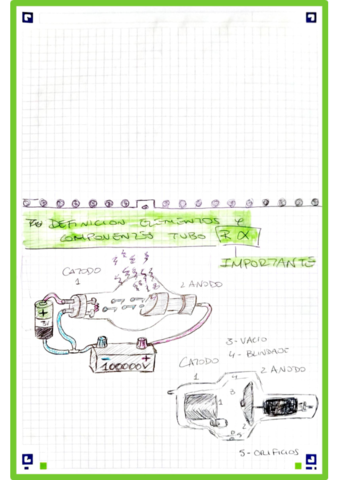 DEFINICION ELEMENTOS Y
COMPONENTES TUBO RX
IMPORTANTE
CATODO
1
2 ANODO
+
- +
100000V
3-VACIO
4-BLINDAJE
CATODO
2 ANODO
1
4
3
2
5
5-ORIFICIOS